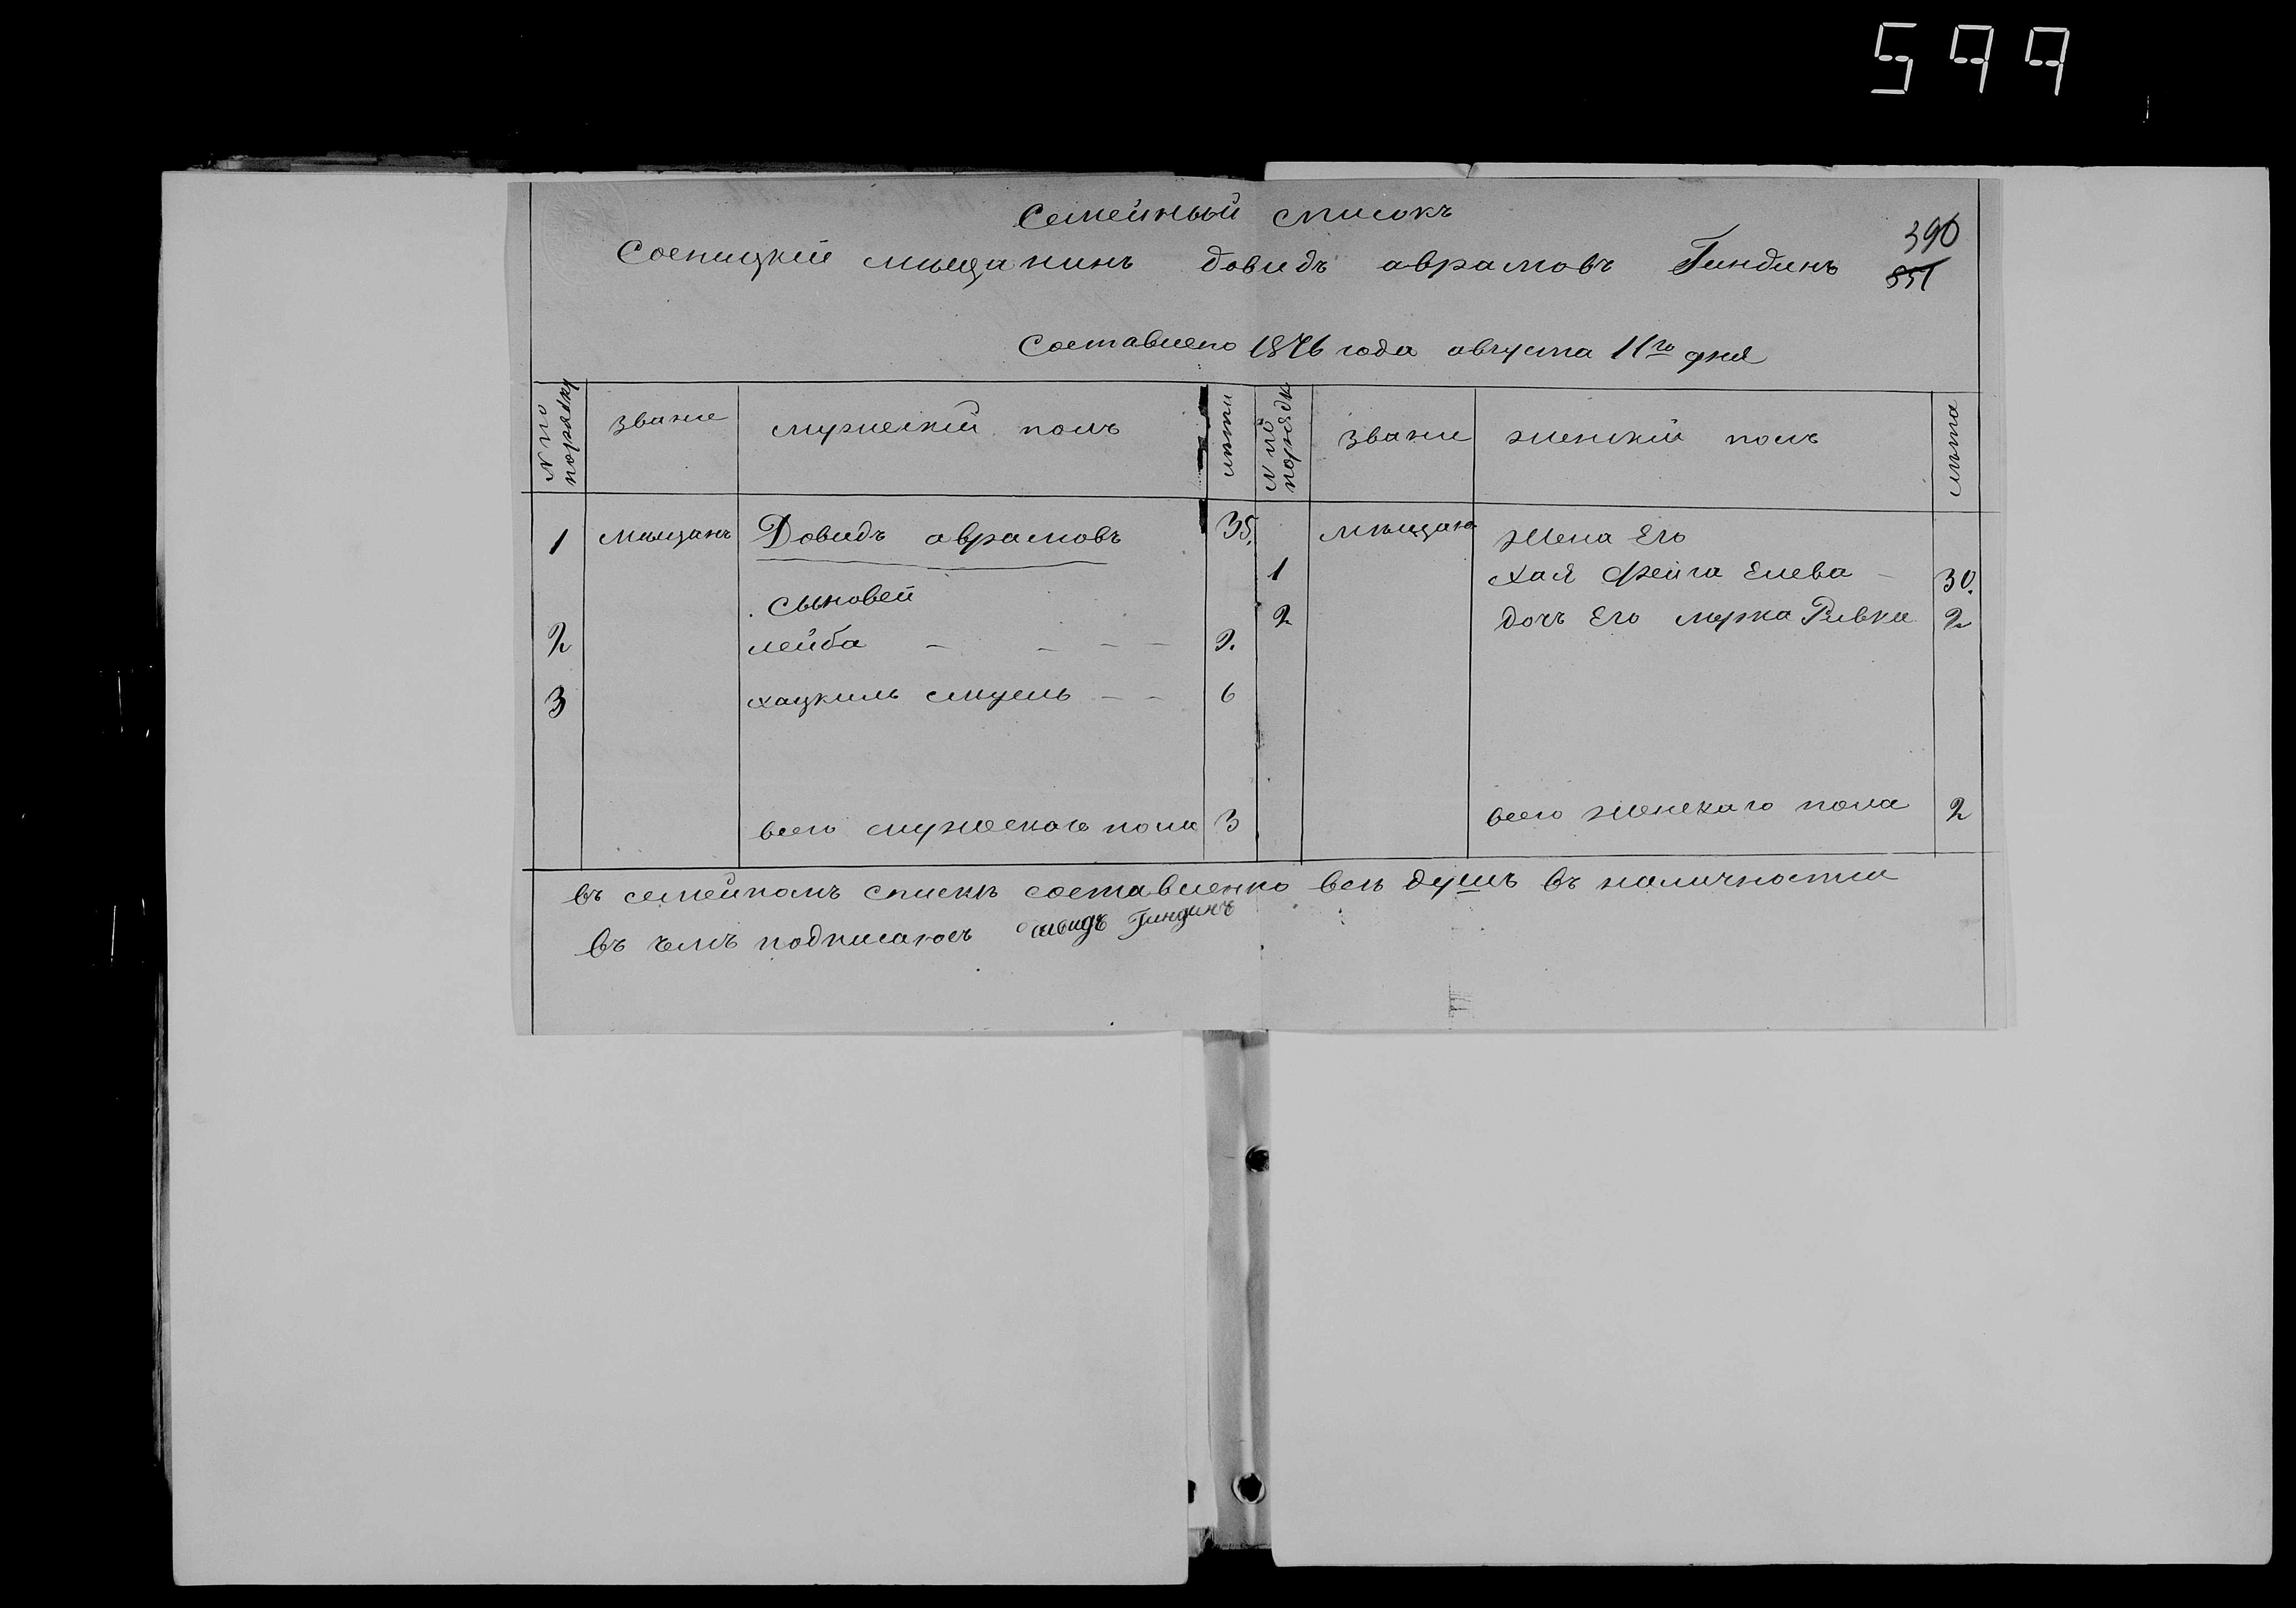 599
Семейный списокъ
390
Сосницкій мыщанинъ довидъ аврамовъ Гиндинъ
851
Составлено 1876 года августа 11го дня
N по порядку звание мужескій полъ лѣта N по порядк звание женскій полъ лѣта
1 мыщанъ Довидъ аврамовъ 35. мыщано Жена Его
1 Хая Фейга Елева - 30.
Сыновей
2 дочъ Его мерка Ривка 2
2 лейба - - - - 9.
3 хацкиль смуель - - 6
всего мужескаго пола 3 всего женскаго пола 2
въ семейномъ спискѣ составленно всѣ душъ въ наличности
въ чемъ подписаюсъ Гиндинъ